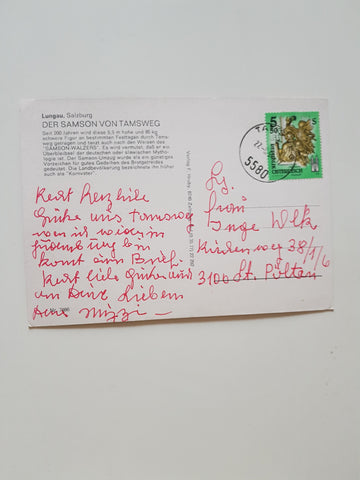 Lungau, Salzburg
DER SAMSON VON TAMSWEG
Seit 200 Jahren wird diese 5,5 m hohe und 85 kg
schwere Figur an bestimmten Festtagen durch Tams-
weg getragen und tanzt auch nach den Weisen des
"SAMSON-WALZERS". Es wird vermutet, daß er ein
Überbleibsel der deutschen oder slawischen Mytho-
logie ist. Der Samson-Umzug wurde als ein günstiges
Vorzeichen für gutes Gedeihen des Brotgetreides
gedeutet. Die Landbevölkerung bezeichnete ihn früher
auch als "Kornvater".
Recht Herzliche
Grüße aus Tamsweg
wenn ich wieder in
Judenburg bin
kommt ein Brief.
Recht liebe Grüße und
an Deine Lieben
Deine Mizzi
Verlag F.
5
S
REPUBLIK
ÖSTERREICH
TA
5580
Frau
Inge Welk
38/1/6
3100 St. Pölten